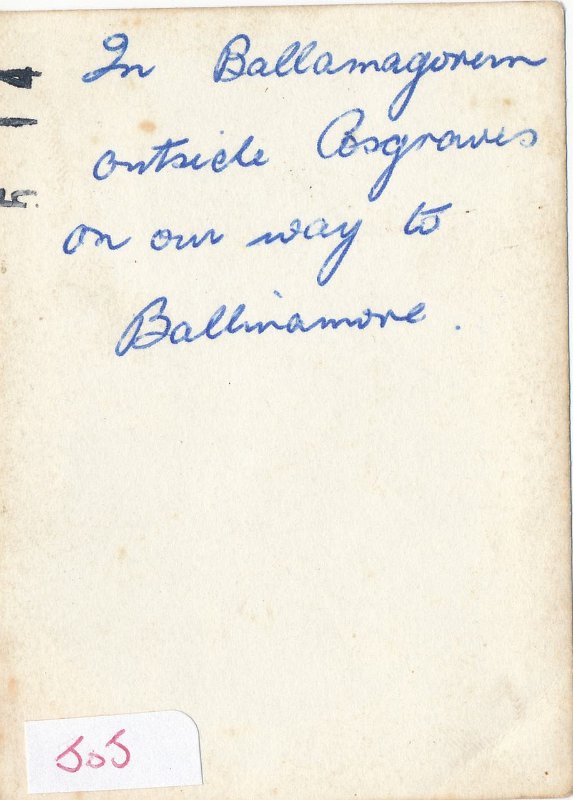 In Ballamagovern
outside Cosgraves
on our way to
Ballinamore.
JoJ